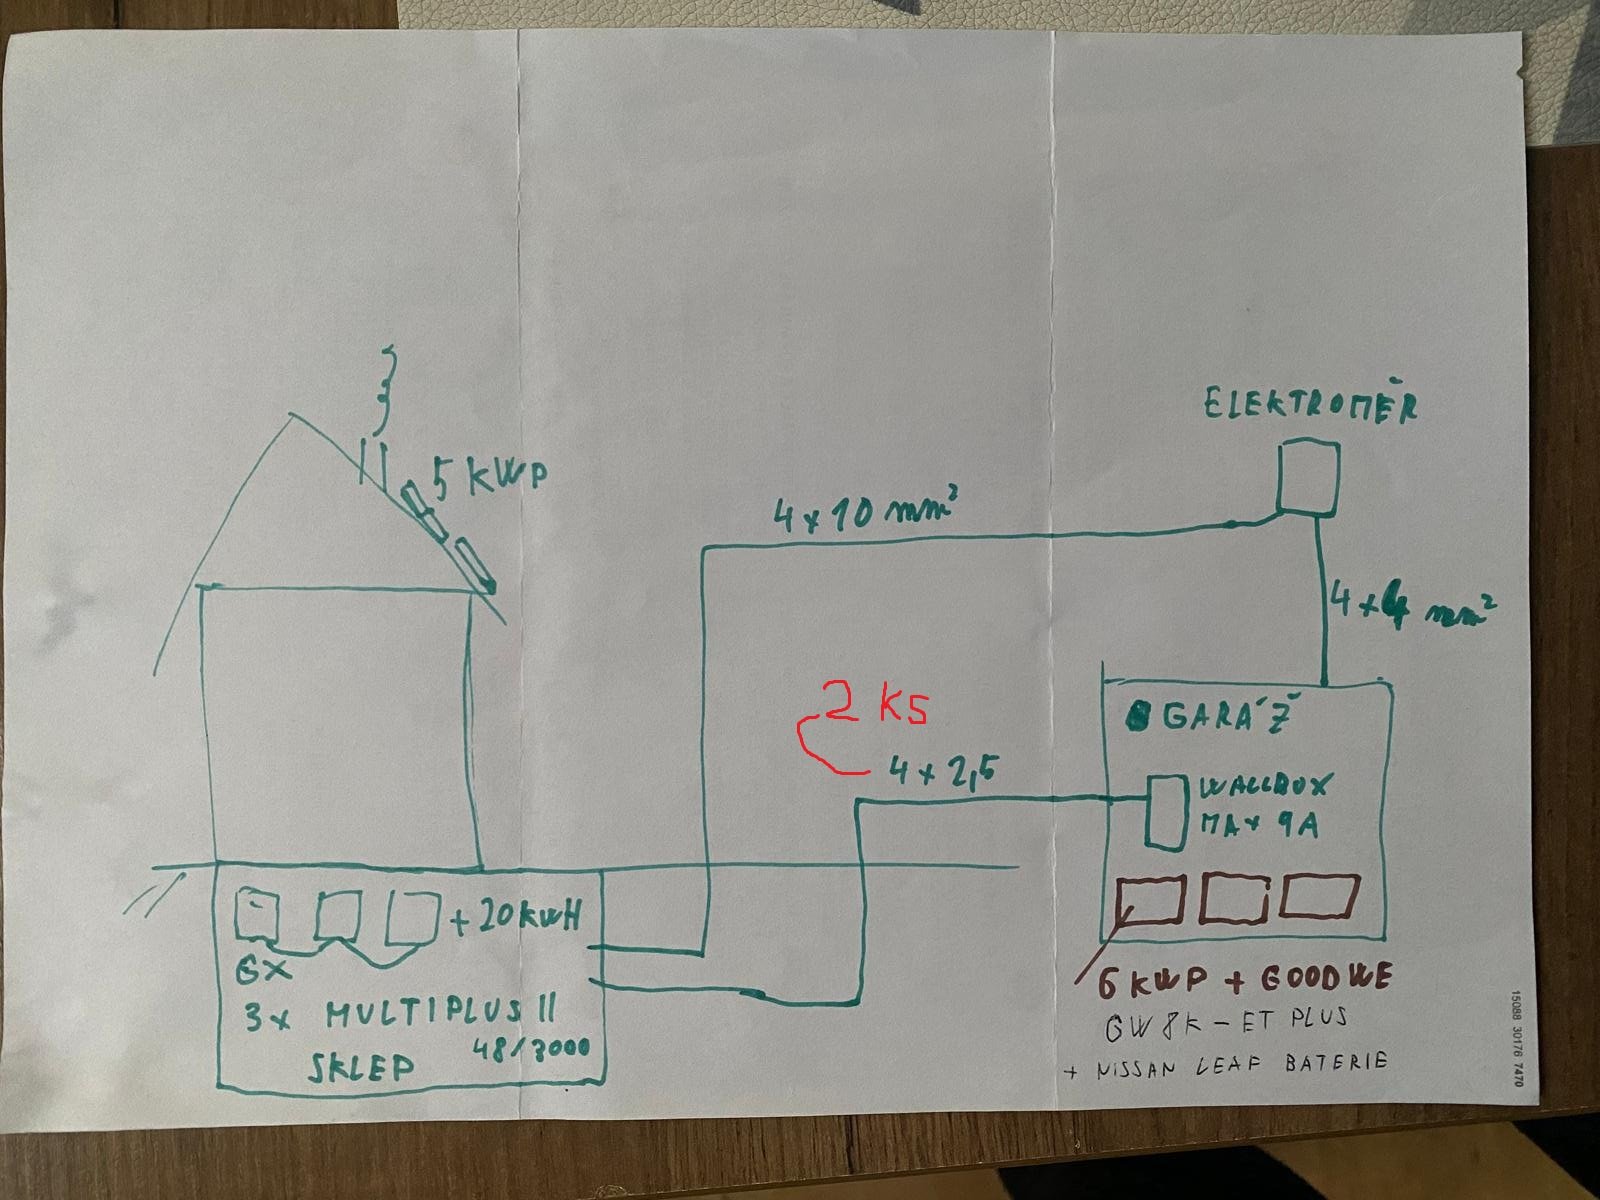 ELEKTROMĚR
5 KWP
4 x 10 mm²
4 x 4 mm²
2 KS
4 x 2,5
GARÁŽ
WALLBOX
MAX 9A
+ 20 KWH
GX
3x MULTIPLUS II
48/3000
SKLEP
6 KWP + GOODWE
GW 8K - ET PLUS
+ NISSAN LEAF BATERIE
15088 30176 7470